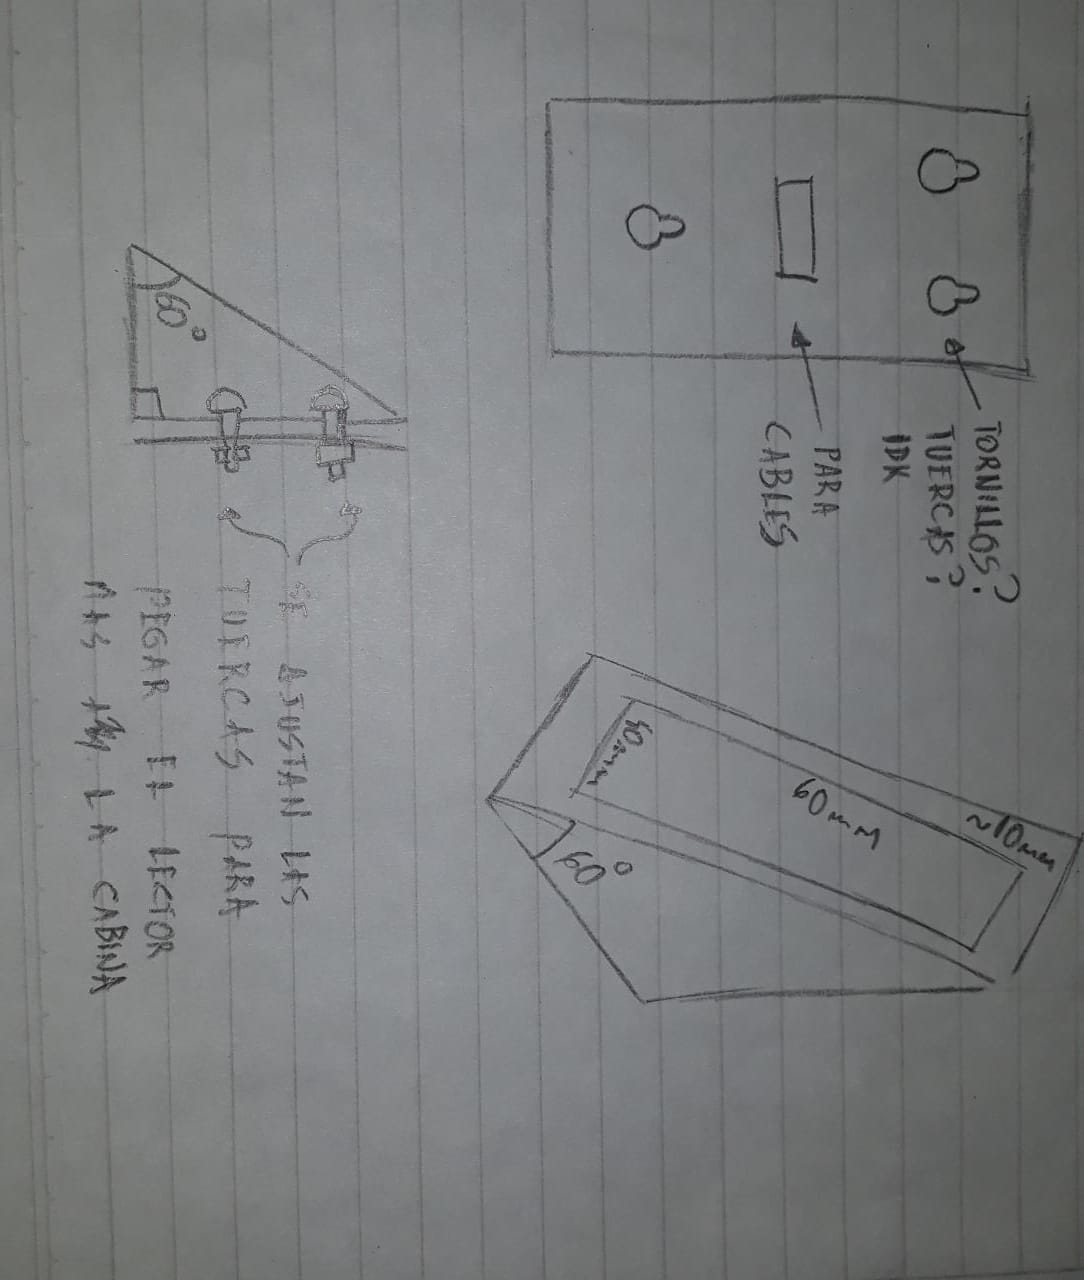 TORNILLOS?
TUERCAS?
IDK
PARA
CABLES
~10mm
60mm
40mm
60°
60°
SE AJUSTAN LAS
TUERCAS PARA
PEGAR EL LECTOR
MAS LA CABINA